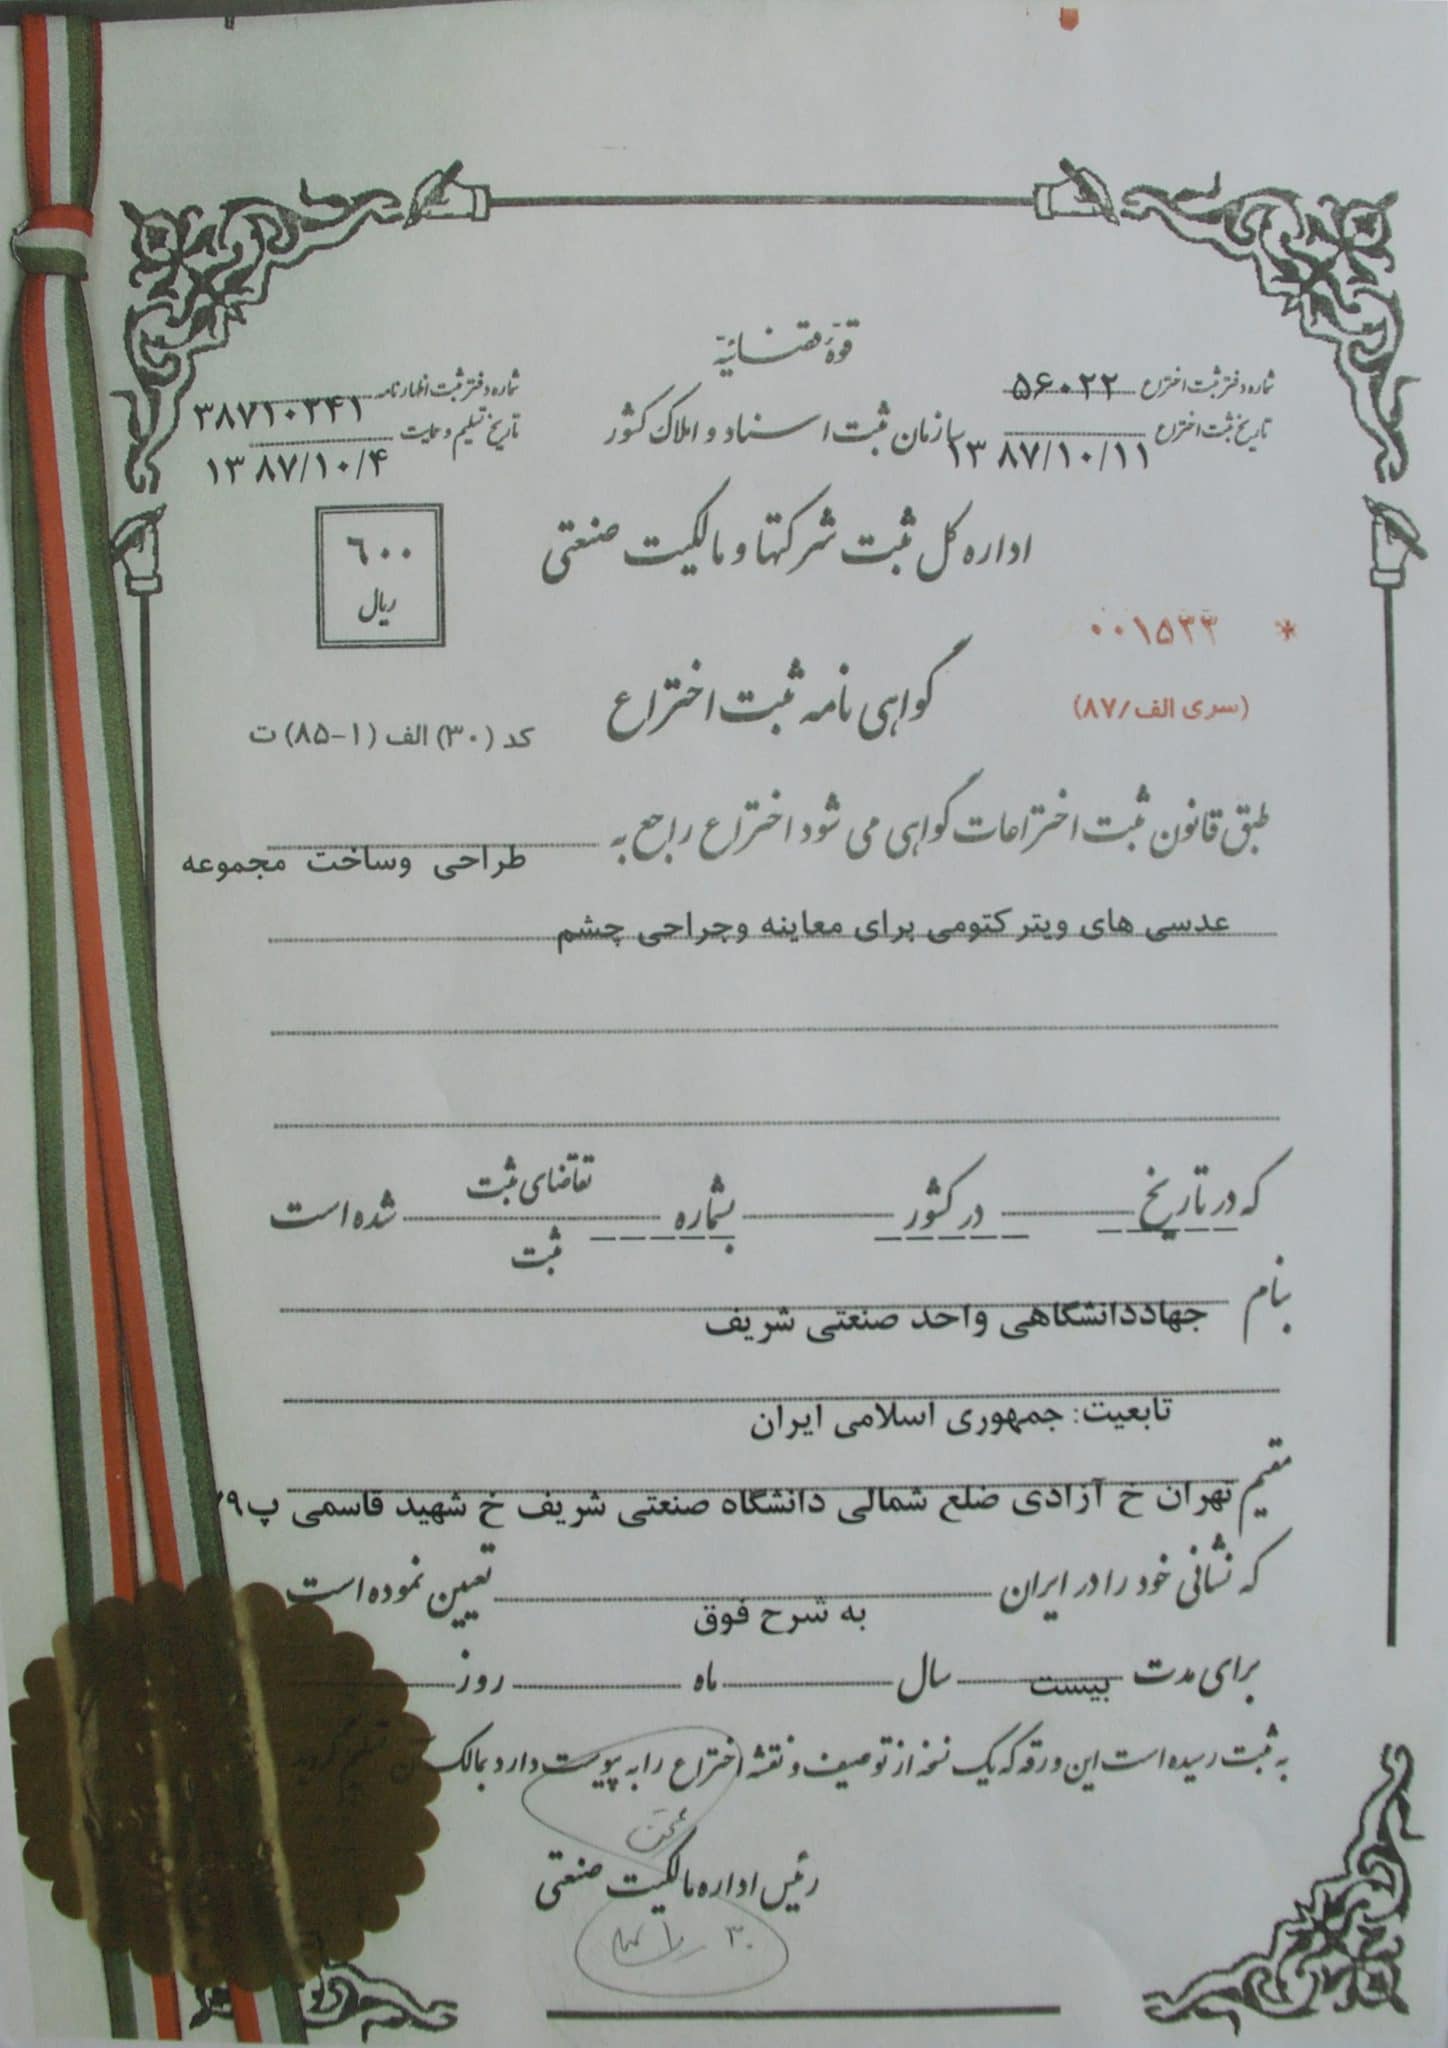 قوهٔ قضائیه
شماره دفتر ثبت اختراع ۵۶۰۲۲
شماره دفتر ثبت اظهارنامه ۳۸۷۱۰۲۴۱
سازمان ثبت اسناد و املاک کشور
تاریخ ثبت اختراع ۱۳۸۷/۱۰/۱۱
تاریخ تسلیم و حمایت ۱۳۸۷/۱۰/۴
اداره کل ثبت شرکتها و مالکیت صنعتی
۶۰۰
ریال
* ۰۰۱۵۳۳
(سری الف/۸۷)
گواهی نامه ثبت اختراع
کد (۳۰) الف (۱-۸۵) ت
طبق قانون ثبت اختراعات گواهی می شود اختراع راجع به طراحی وساخت مجموعه
عدسی های ویترکتومی برای معاینه وجراحی چشم
که در تاریخ در کشور بشماره تقاضای ثبت شده است
ثبت
بنام جهاددانشگاهی واحد صنعتی شریف
تابعیت: جمهوری اسلامی ایران
مقیم تهران خ آزادی ضلع شمالی دانشگاه صنعتی شریف خ شهید قاسمی پ
که نشانی خود را در ایران به شرح فوق تعیین نموده است
برای مدت بیست سال ماه روز
به ثبت رسیده است این ورقه که یک نسخه از توصیف و نقشه اختراع را به پیوست دارد بمالک آن تسلیم گردید
رئیس اداره مالکیت صنعتی